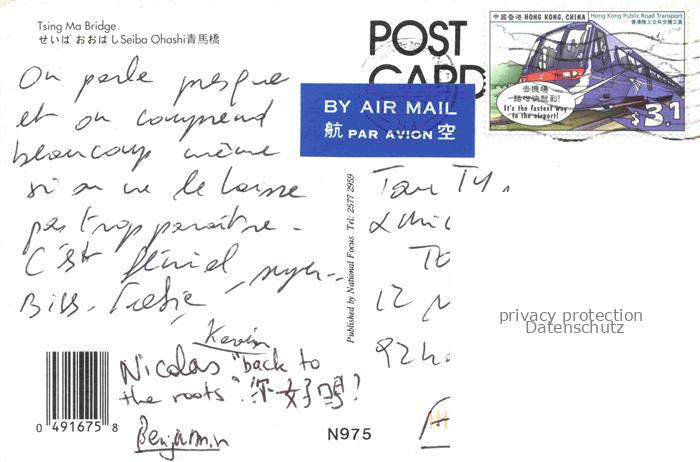 Tsing Ma Bridge
せいば おおはしSeiba Ohashi青馬橋
POST
CARD
中國香港 HONG KONG, CHINA
Hong Kong Public Road Transport
香港陸上公共交通工具
去機場
It's the fastest way
to the airport!
$3.1
BY AIR MAIL
航 PAR AVION 空
On parle presque
et on comprend
beaucoup même
si on ne le laisse
pas trop paraître.
C'est génial
Kevin
Nicolas "back to
the roots". 你好吗?
Benjamin
Published by National Focus Tel: 2577 2959
12
privacy protection
Datenschutz
0 491675 8
N975